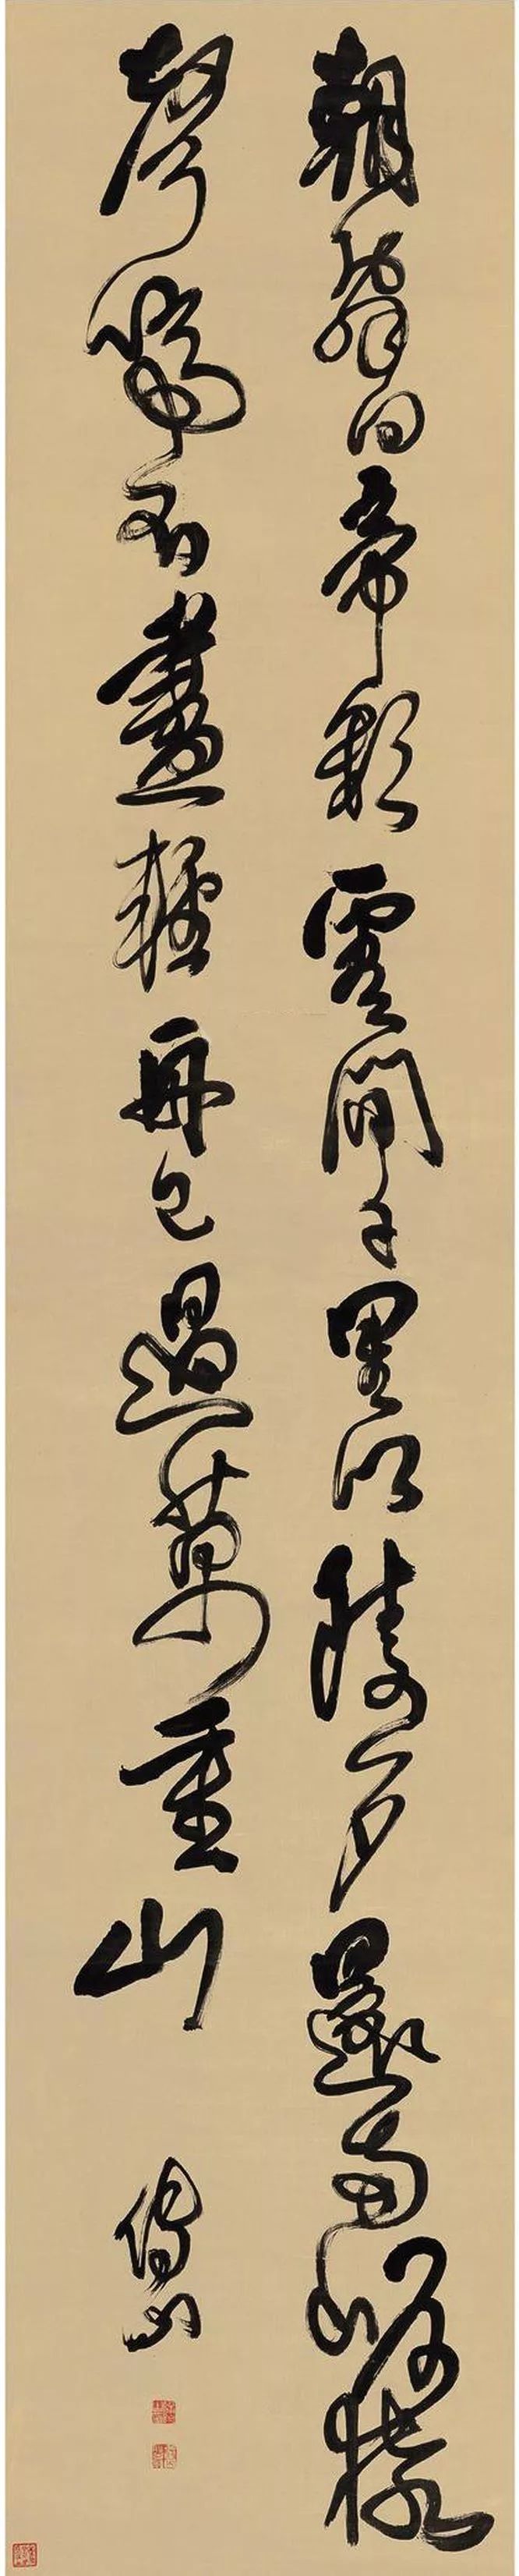 朝辭白帝彩雲間千里江陵一日還兩岸猿
聲啼不盡輕舟已過萬重山
傅山